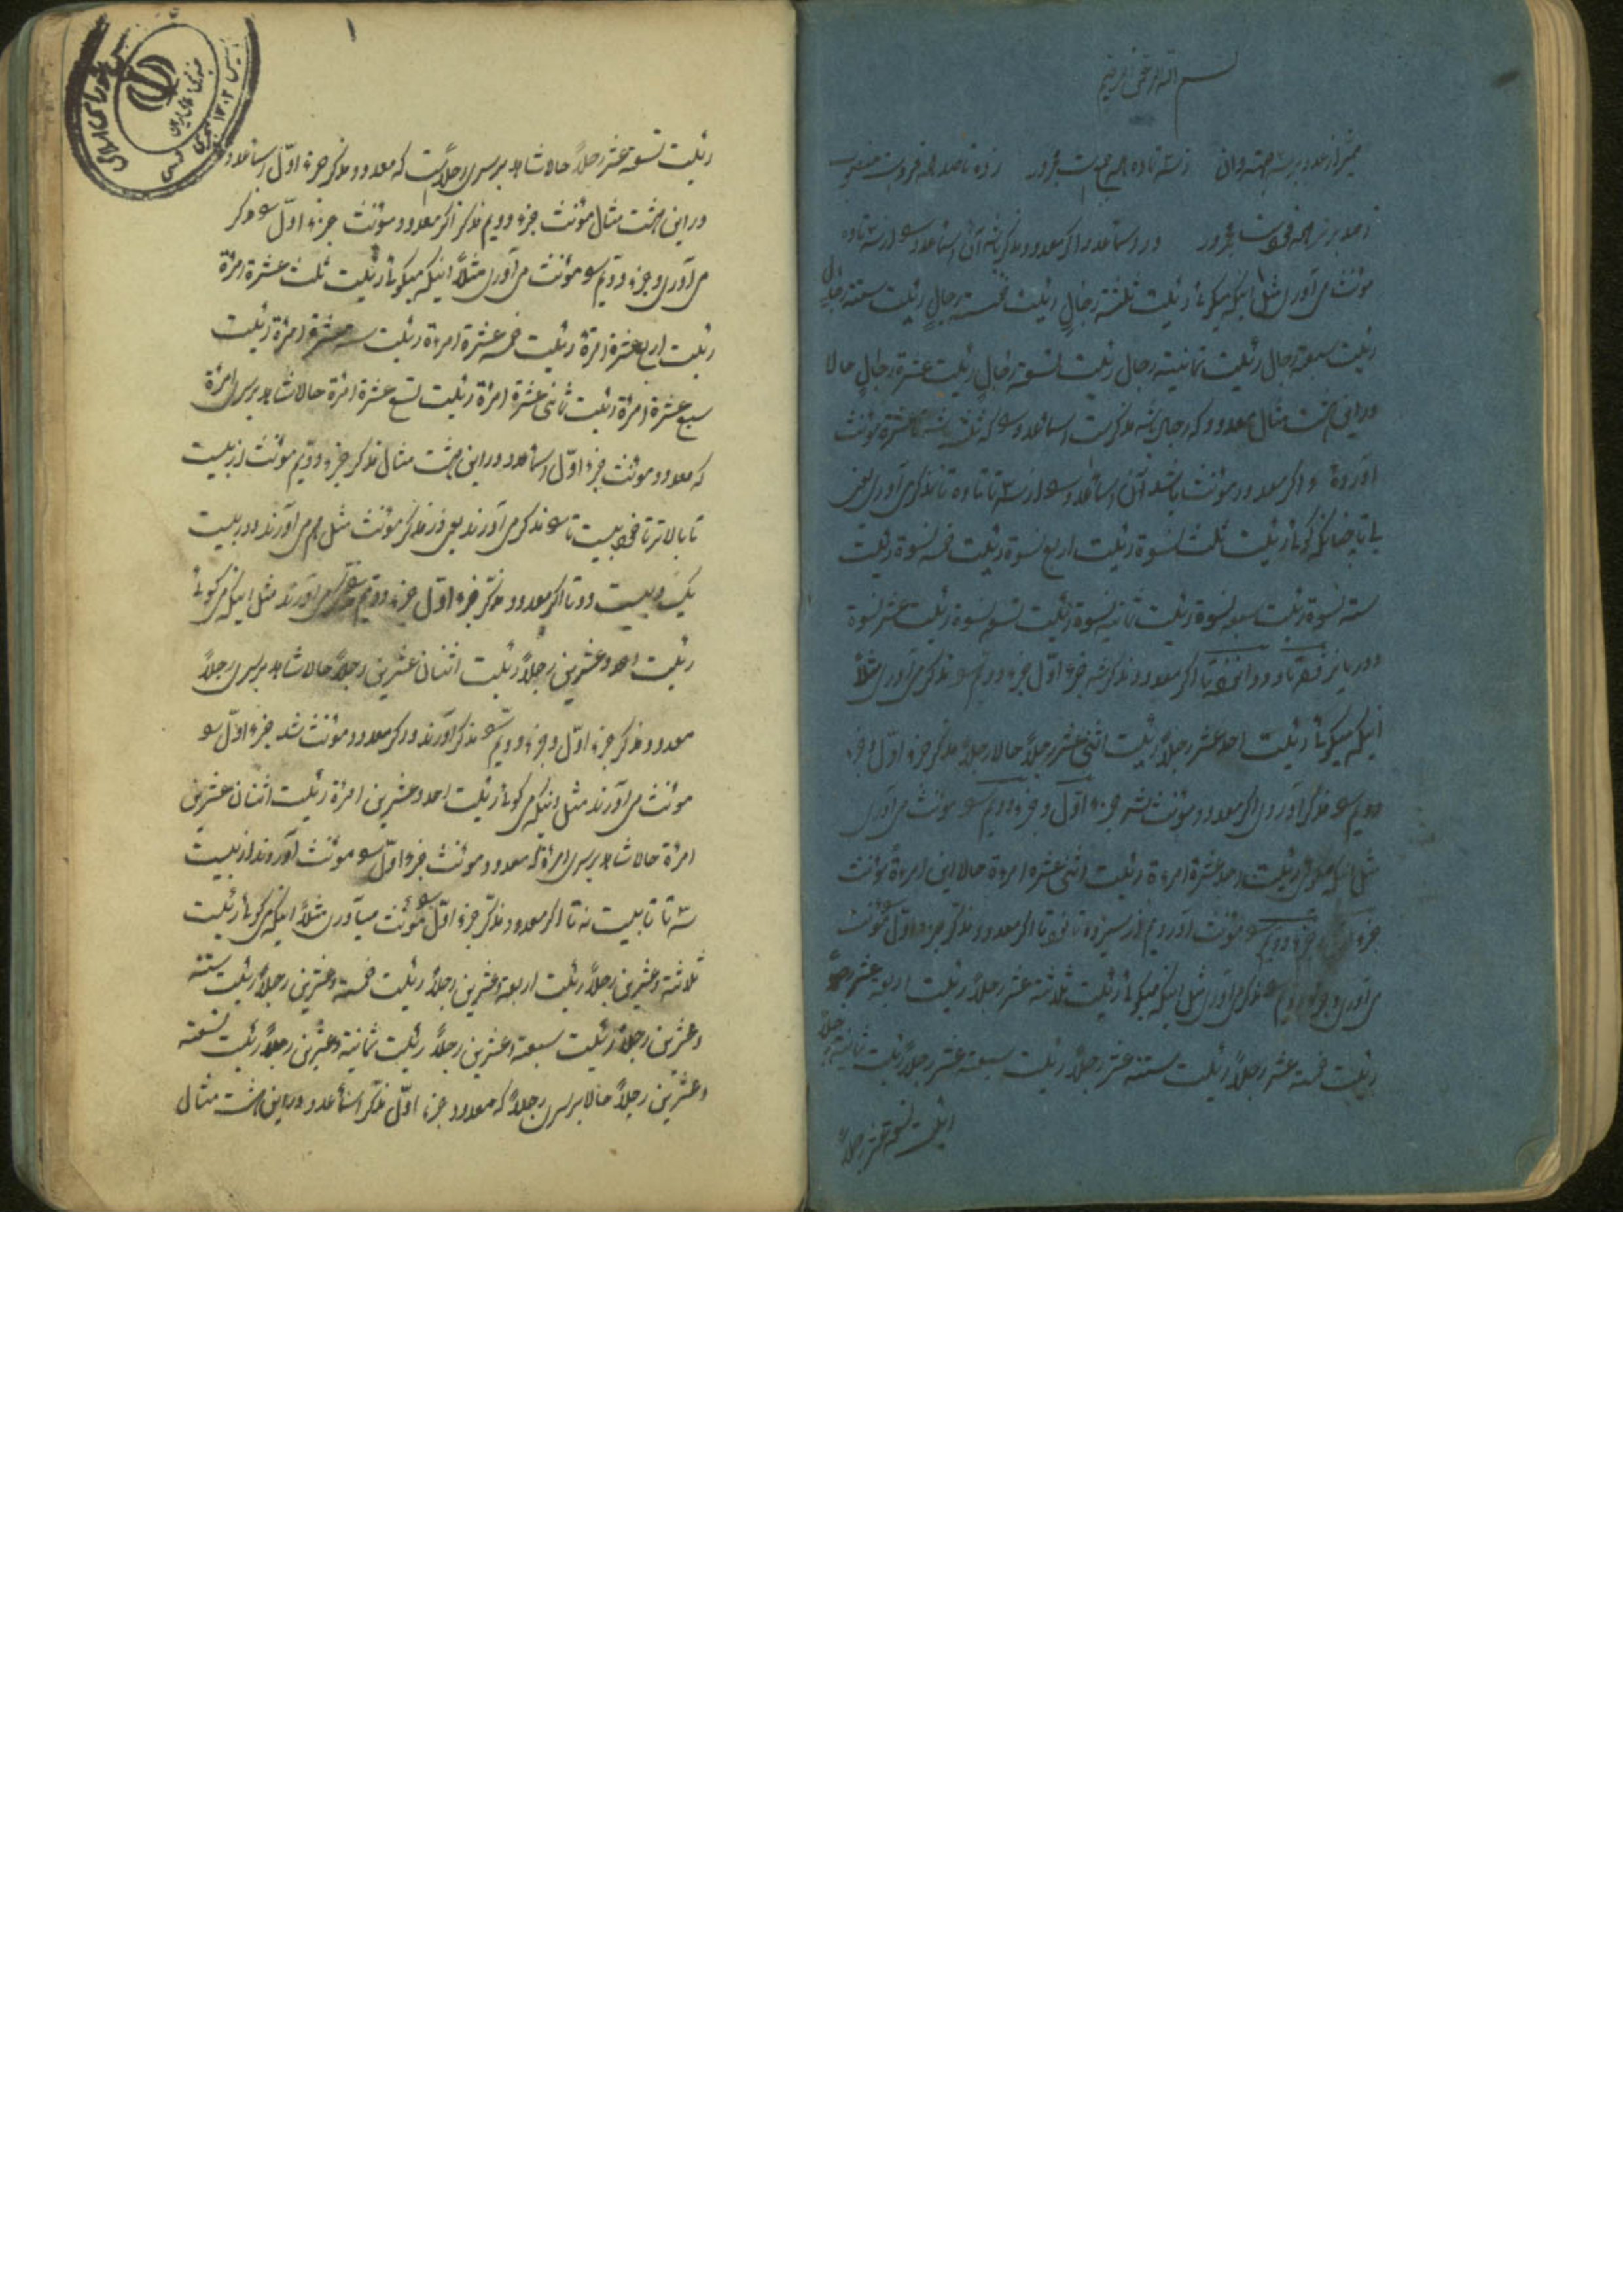 بسم الله الرحمن الرحیم
ممیز از عدد بر سه جهة دان ز سه تا ده همه جمع است مجرور ز ده تا صد همه فرد است منصوب
ز صد برتر همه فرد است مجرور و در اسماء عدد اگر معدود مذکر باشد آن اسماء عدد سو از سه تا ده
مونث می آوری مثل اینکه میگوئی رئیت ثلثة رجالٍ رئیت خمسة رجالٍ رئیت ستة رجالٍ
رئیت سبعة رجال رئیت ثمانیته رجال رئیت تسعة رجالٍ رئیت عشرة رجالٍ حالا
در این هشت مثال معدود که رجال باشد مذکر است اسماء عدد سو که ثلثة باشد تا عشرة مونث
آورده و اگر معدود مونث باشد آن اسماء عدد سو از سه تا تا ده تا مذکر می آوری یعنی
بی تا چنانکه گوئی رئیت ثلث نسوة رئیت اربع نسوة رئیت خمس نسوة رئیت
سته نسوة رئیت سبع نسوة رئیت ثمانیه نسوة رئیت تسع نسوة رئیت عشر نسوة
و در یازده تا و دوازده تا اگر معدود مذکر شد جزء اول جزء دویم سو مذکر می آوری مثلاً
اینکه میگوئی رئیت احد عشر رجلاً رئیت اثنی عشر رجلاً حالا رجلاً مذکر جزء اول و جزء
دویم سو مذکر آوردی اگر معدود مونث شد جزء اول و جزء دویم سو مونث می آوری
مثل اینکه میگوئی رئیت احد عشرة امرءة رئیت اثنی عشره امرءة حالا این امرءة مونث
جزء اول جزء دویم سو مونث آوردیم از سیزده تا نوزده تا اگر معدود مذکر جزء اول سو مونث
می آوری و جزء دویم سو مذکر می آوری مثل اینکه میگوئی رئیت ثلاثته عشر رجلاً رئیت اربعة عشر رجلاً
رئیت خمسة عشر رجلاً رئیت ستته عشر رجلاً رئیت سبعته عشر رجلاً رئیت ثمانیته عشر رجلاً
رئیت تسعة عشر رجلاً
۱
رئیت تسعة عشر رجلاً حالا شاهد بر سر رجلاً است که معدود مذکر جزء اوّل اسماء عدد
در این هشت مثال مؤنث جزء دویم مذکر اگر معدود مؤنث جزء اوّل سو مذکر
می آوری و جزء دویم سو مؤنث می آوری مثلاً اینکه میگوئی رئیت ثلث عشرة امرئة
رئیت اربع عشرة امرئة رئیت خمسه عشرة امرءة رئیت سته عشرة امرئة رئیت
سبع عشرة امرئة رئیت ثمانی عشرة امرئة رئیت تسع عشرة امرئة حالا شاهد بر سر امرئة
که معدود مونث جزء اوّل اسماء عدد در این هشت مثال مذکر جزء دویم مونث از بیست
تا بالاتر تا نود بیست تا سو مذکر می آورند یعنی در مذکر مؤنث مثل هم می آورند و در بیست
یک و بیست دو تا اگر معدود مذکر جزء اوّل جزء دویم سو مذکر می آورند مثل اینکه می گوئی
رئیت احد و عشرین رجلاً رئیت اثنان عشرین رجلاً حالا شاهد بر سر رجلاً
معدود مذکر جزء اوّل و جزء دویم سو مذکر آورند و اگر معدود مونث شد جزء اوّل سو
مونث می آورند مثل اینکه می گوئی رئیت احد و عشرین امرئة رئیت اثنان عشرین
امرئة حالا شاهد بر سر امرئة که معدود مونث جزء اوّل سو مونث آوردند از بیست
سه تا تا بیست نه تا اگر معدود مذکر جزء اوّل سو مؤنث میآوری مثلاً اینکه می گوئی رئیت
ثلاثة و عشرین رجلاً رئیت اربعة و عشرین رجلاً رئیت خمسة و عشرین رجلاً رئیت ستته
و عشرین رجلاً رئیت سبعته و عشرین رجلاً رئیت ثمانیة و عشرین رجلاً رئیت تسعته
و عشرین رجلاً حالا بر سر رجلاً که معدود جزء اوّل مذکر اسماء عدد در این هشت مثال